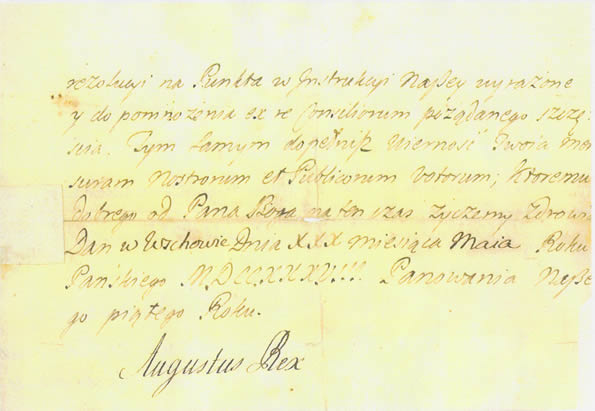 rezolucyi na Punkta w Instrukcyi Naßey wyrażone
y do pomnożenia ex re Consiliorum pożądanego szczę:
scia. Tym samym dopełnisz Wierność Twoia men
suram Nostrorum et Publicorum Votorum; Ktoremu
dobrego od Pana Boga na ten czas życzemy Zdrowia
Dan w Wschowie Dnia XXX miesiąca Maia Roku
Pańskiego MDCCXXXVIII Panowania Naße
go piątego Roku.
Augustus Rex